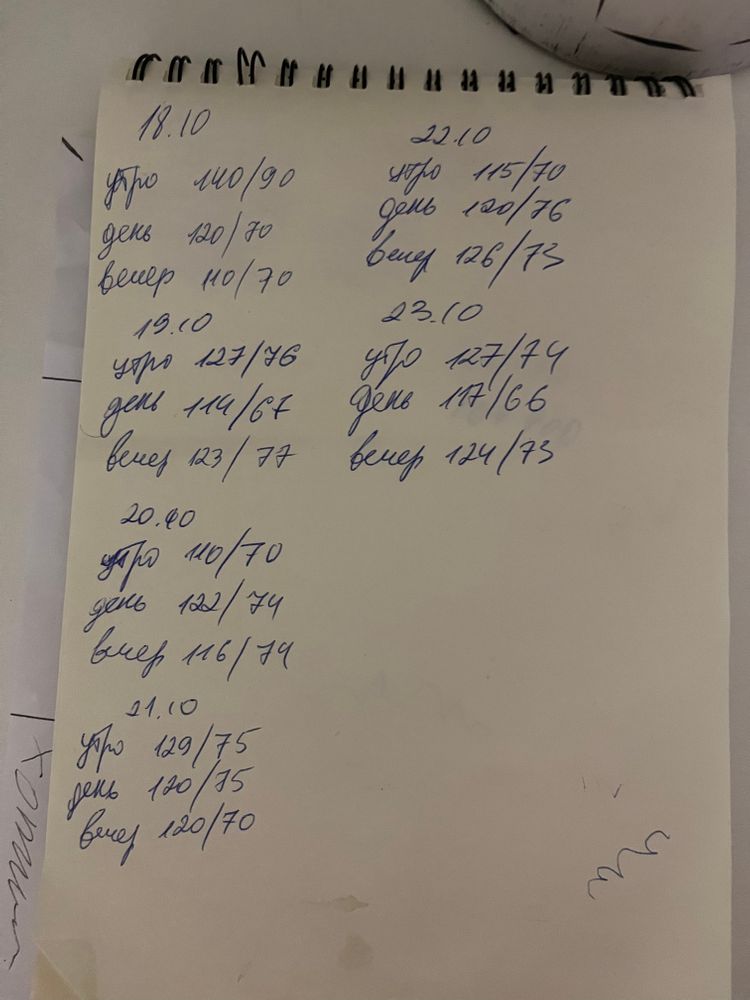 18.10
утро 140/90
день 120/70
вечер 110/70
19.10
утро 127/76
день 114/67
вечер 123/77
20.10
утро 110/70
день 122/74
вечер 116/74
21.10
утро 129/75
день 120/75
вечер 120/70
22.10
утро 115/70
день 120/76
вечер 126/73
23.10
утро 127/74
день 117/66
вечер 124/73